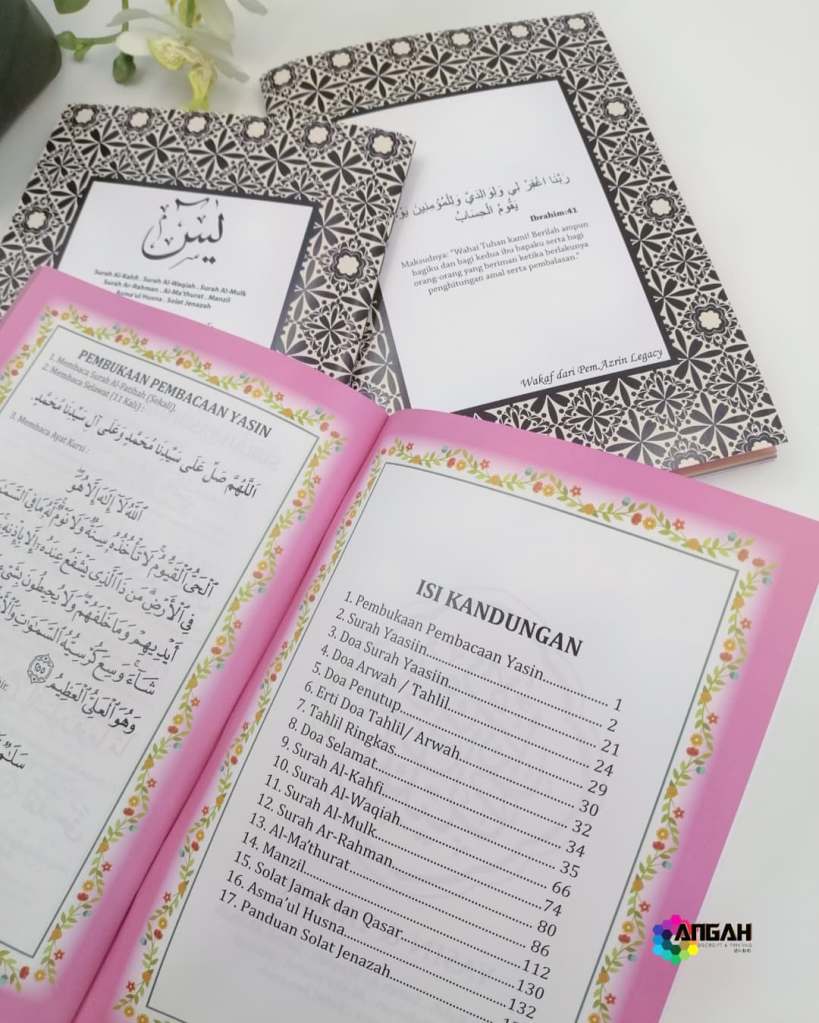 رَبَّنَا اغْفِرْ لِي وَلِوَالِدَيَّ وَلِلْمُؤْمِنِينَ يَوْمَ
يَقُومُ الْحِسَابُ
Ibrahim:41
Maksudnya: "Wahai Tuhan kami! Berilah ampun
bagiku dan bagi kedua ibu bapaku serta bagi
orang-orang yang beriman ketika berlakunya
penghitungan amal serta pembalasan."
Wakaf dari Pem.Azrin Legacy
يٓسٓ
Surah Al-Kahfi . Surah Al-Waqiah . Surah Al-Mulk
Surah Ar-Rahman . Al-Ma'thurat . Manzil
Asma'ul Husna . Solat Jenazah
PEMBUKAAN PEMBACAAN YASIN
1. Membaca Surah Al-Fatihah (Sekali).
2. Membaca Selawat (11 Kali) :
اَللّٰهُمَّ صَلِّ عَلَى سَيِّدِنَا مُحَمَّدٍ وَعَلَى آلِ سَيِّدِنَا مُحَمَّدٍ
3. Membaca Ayat Kursi :
ٱللَّهُ لَآ إِلَٰهَ إِلَّا هُوَ
ٱلْحَىُّ ٱلْقَيُّومُ لَا تَأْخُذُهُۥ سِنَةٌ وَلَا نَوْمٌ لَّهُۥ مَا فِى
فِى ٱلْأَرْضِ مَن ذَا ٱلَّذِى يَشْفَعُ عِندَهُۥٓ إِلَّا بِإِذْنِهِۦ
أَيْدِيهِمْ وَمَا خَلْفَهُمْ وَلَا يُحِيطُونَ بِشَىْءٍ
شَآءَ وَسِعَ كُرْسِيُّهُ ٱلسَّمَٰوَٰتِ
وَهُوَ ٱلْعَلِىُّ ٱلْعَظِيمُ ٢٥٥
ISI KANDUNGAN
1. Pembukaan Pembacaan Yasin................ 1
2. Surah Yaasiin................ 2
3. Doa Surah Yaasiin................ 21
4. Doa Arwah / Tahlil................ 24
5. Doa Penutup................ 29
6. Erti Doa Tahlil/ Arwah................ 30
7. Tahlil Ringkas................ 32
8. Doa Selamat................ 34
9. Surah Al-Kahfi................ 35
10. Surah Al-Waqiah................ 66
11. Surah Al-Mulk................ 74
12. Surah Ar-Rahman................ 80
13. Al-Ma'thurat................ 86
14. Manzil................ 112
15. Solat Jamak dan Qasar................ 130
16. Asma'ul Husna................ 132
17. Panduan Solat Jenazah................
ANGAH